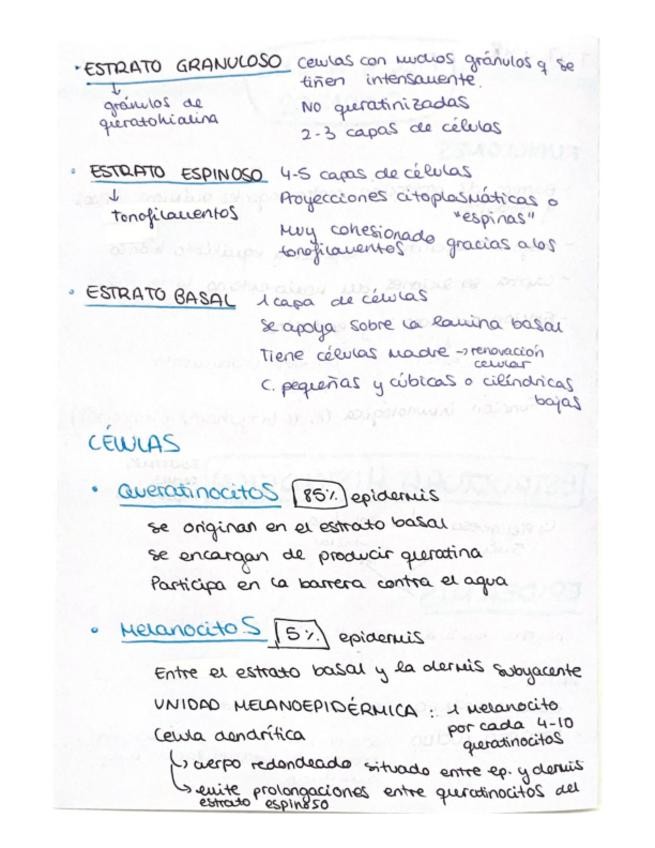 · ESTRATO GRANULOSO células con muchos gránulos q se
tiñen intensamente.
↓
gránulos de
queratohialina
No queratinizadas
2-3 capas de células
· ESTRATO ESPINOSO 4-5 capas de células
↓
tonofilamentos
Proyecciones citoplasmáticas o
"espinas"
Muy cohesionado gracias a los
tonofilamentos
· ESTRATO BASAL 1 capa de células
Se apoya sobre la lámina basal
Tiene células madre → renovación
celular
C. pequeñas y cúbicas o cilíndricas
bajas
CÉLULAS
· Queratinocitos 85% epidermis
se originan en el estrato basal
se encargan de producir queratina
Participa en la barrera contra el agua
· Melanocitos 5% epidermis
Entre el estrato basal y la dermis subyacente
UNIDAD MELANOEPIDÉRMICA : 1 Melanocito
por cada 4-10
queratinocitos
Célula dendrítica
↳ cuerpo redondeado situado entre ep. y dermis
↳ emite prolongaciones entre queratinocitos del
estrato espinoso